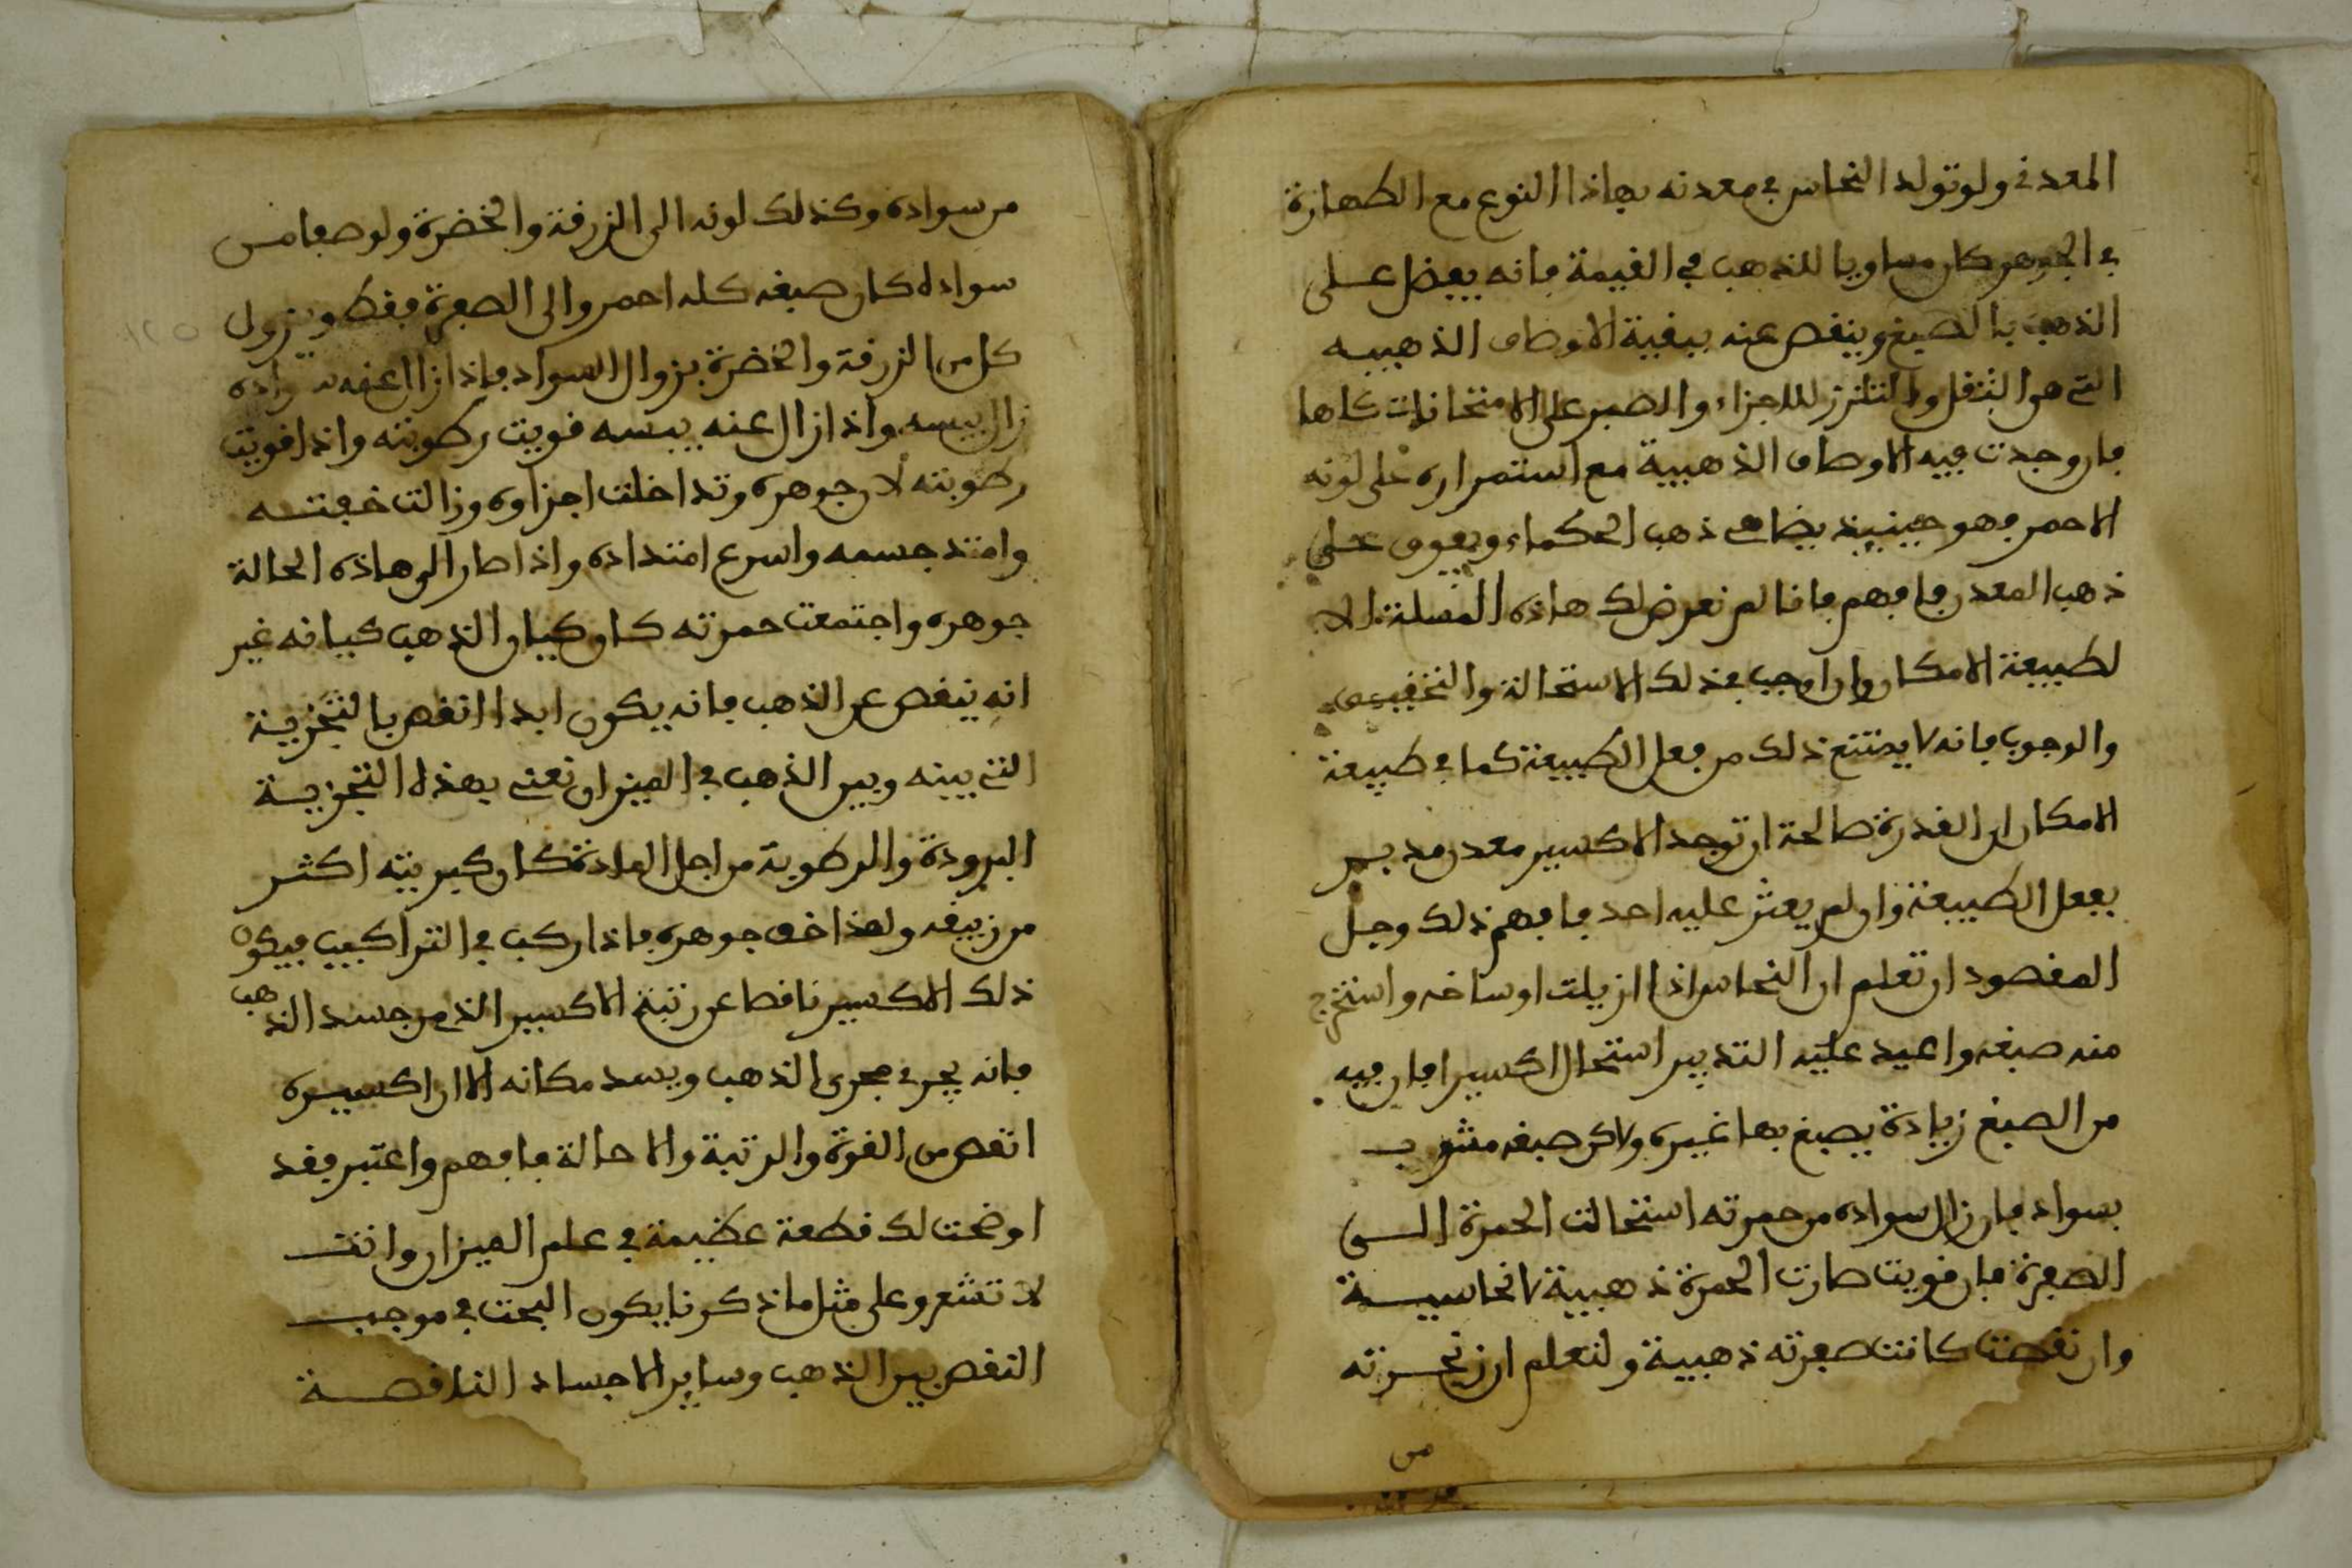 المعدني ولو تولد النحاس في معدنه بهاذا النوع مع الطهارة
في الجوهر كان مساويا للذهب في القيمة فانه يفضل على
الذهب بالصبغ وينقص عنه ببقية الاوصاف الذهبيه
التي هو الثقل والتلزز للاجزاء والصبر على الامتحانات كلها
فان وجدت فيه الاوصاف الذهبية مع استمراره على لونه
الاحمر فهو حينيذ يضاهي ذهب الحكماء ويفوق على
ذهب المعدن فافهم فانا لم نعرض لك هاذه المسلة الا
لطبيعة الامكان وان اوجب في ذلك الاستحالة والتخفيف
والوجوب فانه لا يمتنع ذلك من فعل الطبيعة كما في طبيعة
الامكان ان القدرة صالحة ان توجد الاكسير معدن مدبر
بفعل الطبيعة وان لم يعثر عليه احد فافهم ذلك وجل
المقصود ان تعلم ان النحاس اذا ازيلت اوساخه واستخرج
منه صبغه واعيد عليه التدبير استحال اكسيرا فان فيه
من الصبغ زيادة يصبغ بها غيره ولاكن صبغه مشوب
بسواد فان زال سواده من حمرته استحالت الحمرة الى
الصفرة فان قويت صارت الحمرة ذهبية لا نحاسية
وان نقصت كانت صفرته ذهبية ولتعلم ان زنجرته
من
من سواده وكذلك لونه الى الزرقة والخضرة ولو صفا من
سواده كان صبغه كله احمر والى الصفرة فقط ويزول
كل من الزرقة والخضرة بزوال السواد فاذا زال عنه سواده
زال يبسه واذا زال عنه يبسه قويت رطوبته واذا قويت
رطوبته لان جوهره وتداخلت اجزاوه وزالت خفته
وامتد جسمه واسرع امتداده واذا صار الى هاذه الحالة
جوهره واجتمعت حمرته كان كيان الذهب كيانه غير
انه ينقص عن الذهب فانه يكون ابدا انقص بالتجزية
التي بينه وبين الذهب في الميزان نعني بهذه التجزية
البرودة والرطوبة من اجل المادة كان كبريته اكثر
من زيبقه ولهذا خف جوهره فاذا ركب في التراكيب فيكون
ذلك الاكسير ناقصا عن رتبة الاكسير الذي من جسد الذهب
فانه يجري مجرى الذهب ويسد مكانه الا ان اكسيره
انقص من القوة والرتبة والاحالة فافهم واعتبر فقد
اوضحت لك قطعة عظيمة في علم الميزان وانت
لا تشعر وعلى مثل ما ذكرنا يكون البحث في موجب
النقص بين الذهب وساير الاجساد الناقصة